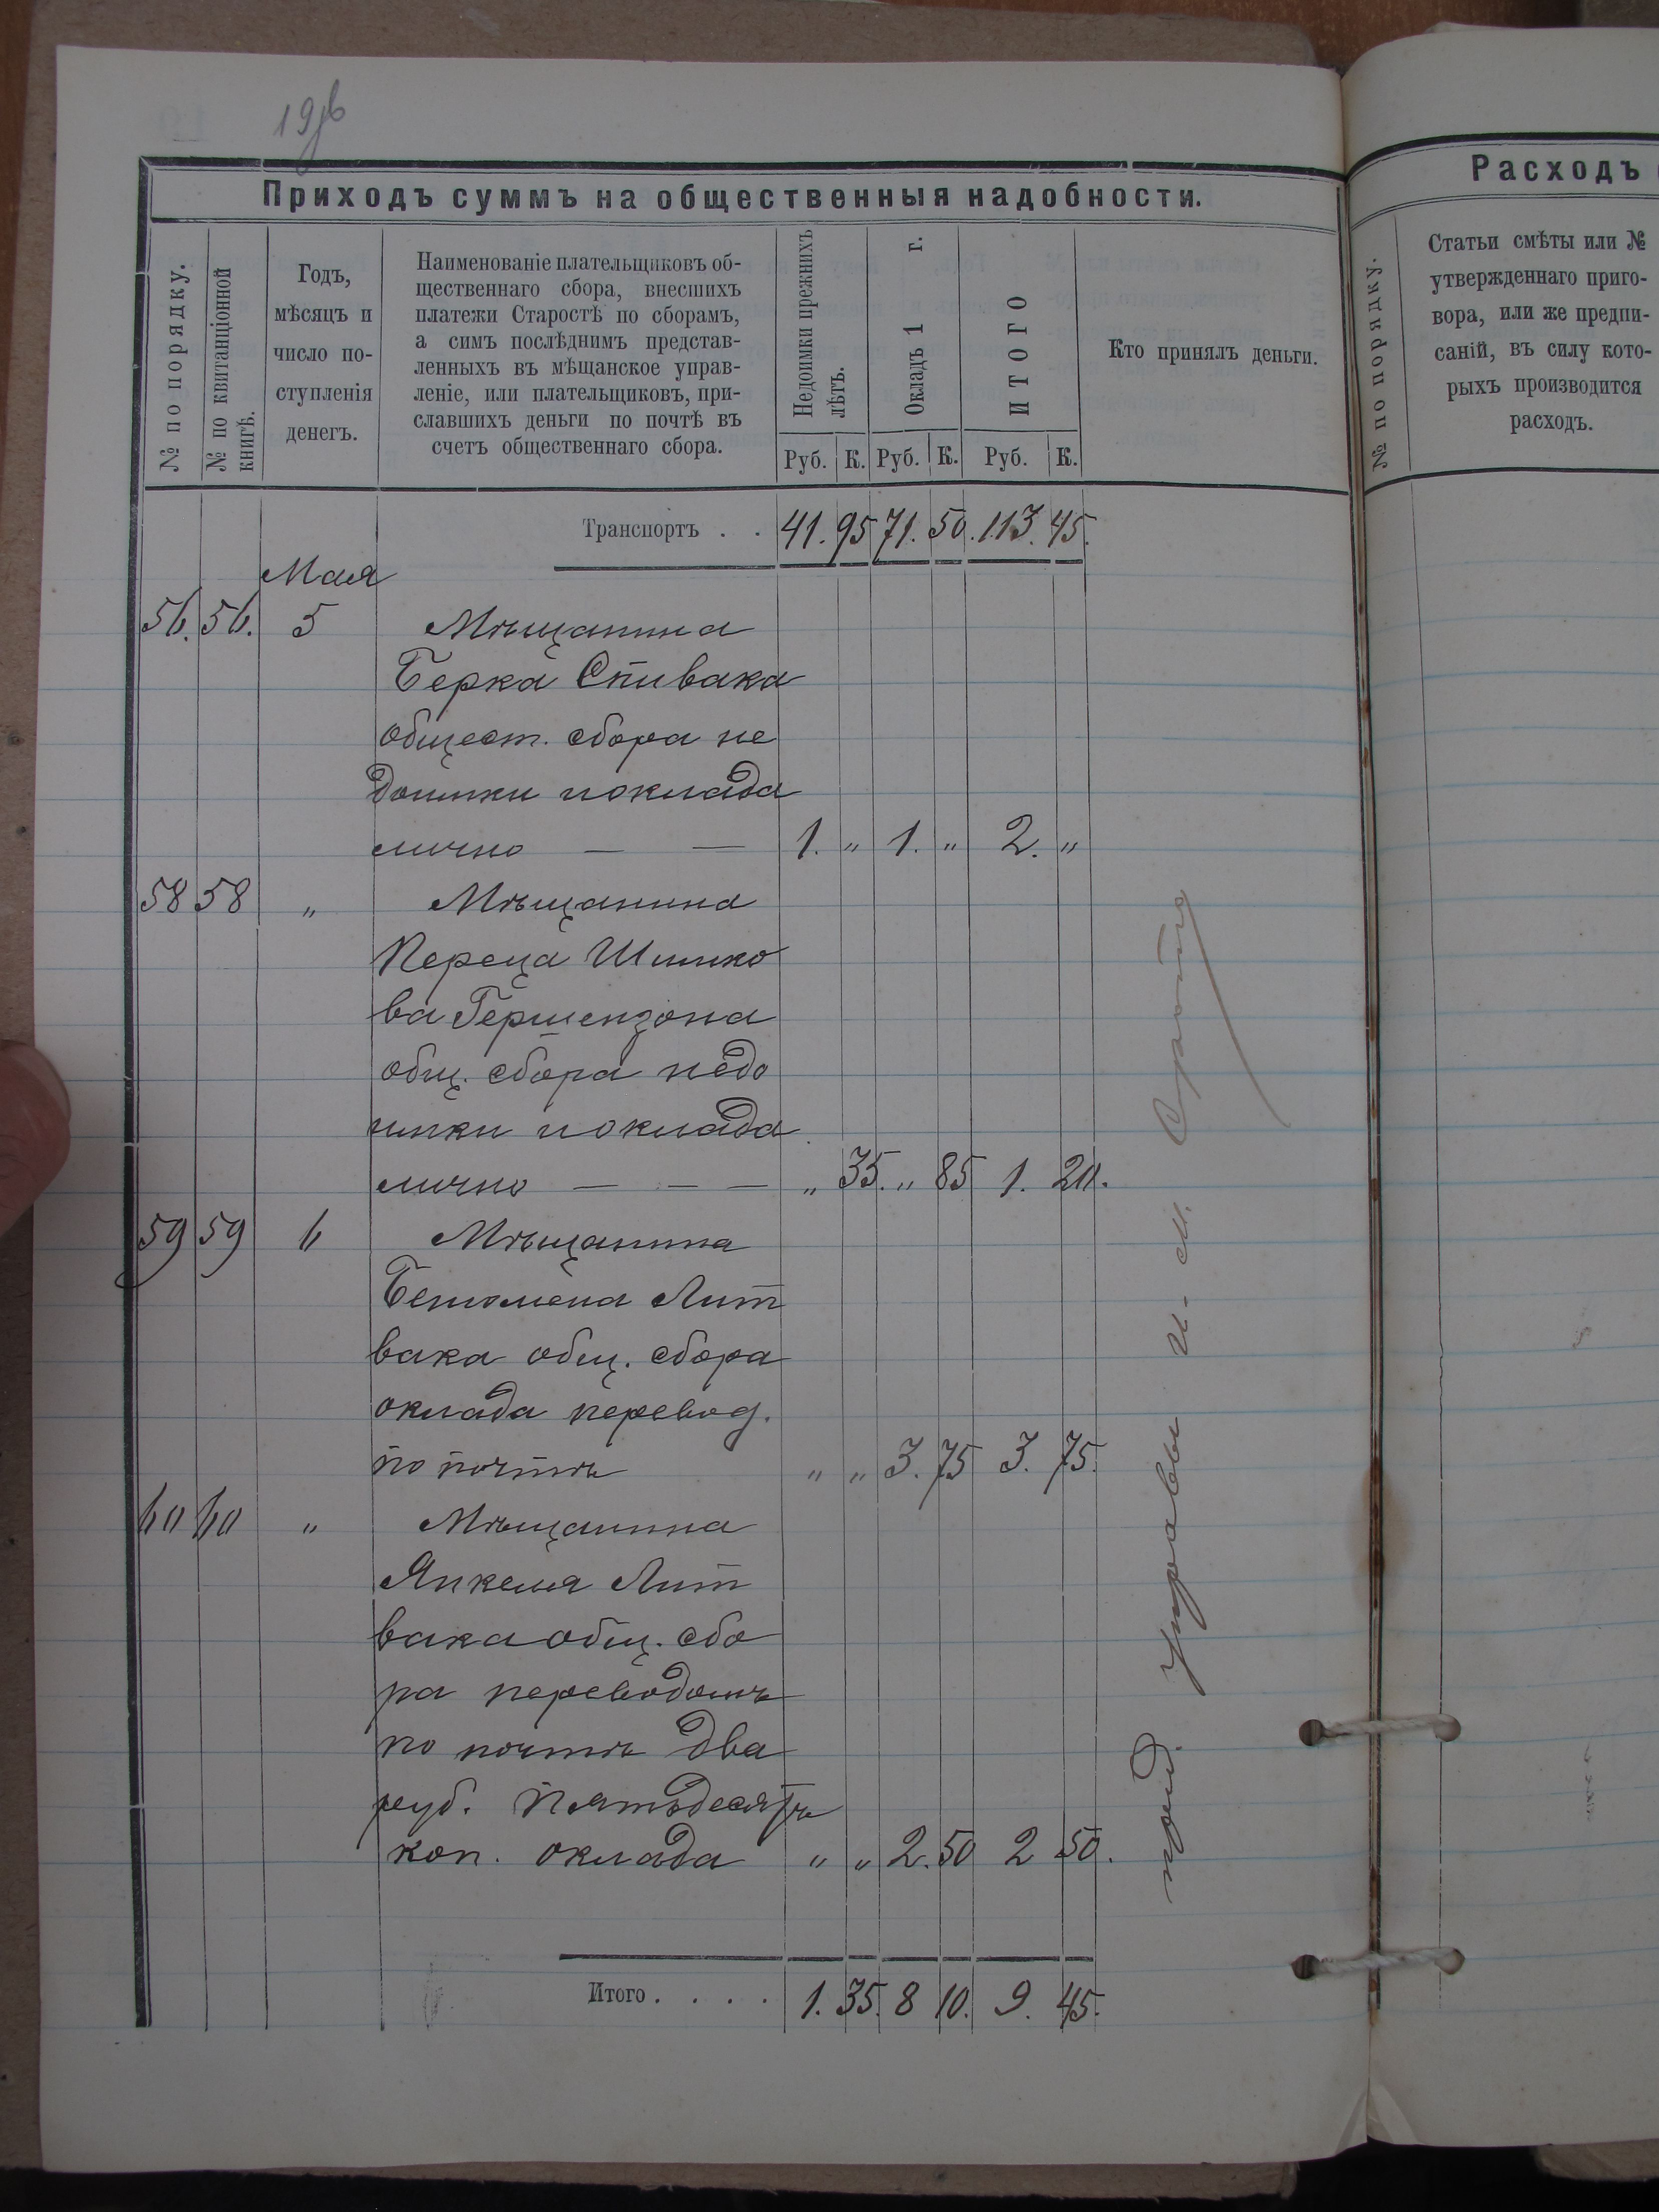 19
Приходъ суммъ на общественныя надобности.
№ по порядку.
№ по квитанціонной
книгѣ.
Годъ,
мѣсяцъ и
число по-
ступленія
денегъ.
Наименованіе плательщиковъ об-
щественнаго сбора, внесшихъ
платежи Старостѣ по сборамъ,
а симъ послѣднимъ представ-
ленныхъ въ мѣщанское управ-
леніе, или плательщиковъ, при-
славшихъ деньги по почтѣ въ
счетъ общественнаго сбора.
Недоимки прежнихъ
лѣтъ.
Окладъ 1 г.
ИТОГО
Кто принялъ деньги.
Руб. К. Руб. К. Руб. К.
Транспортъ . . 41. 95 71. 50. 113. 45.
Мая
56. 56. 5 Мѣщанина
Берка Спивака
общест. сбора не
доимки и оклада
лично — — 1. „ 1. „ 2. „
58 58 „ Мѣщанина
Переца Шимко
ва Гершензона
общ. сбора недо
имки и оклада
лично — — — „ 35. „ 85 1. 20.
59 59 6 Мѣщанина
Лит
вака общ. сбора
оклада перевод.
по почтѣ „ „ 3. 75 3. 75.
60 60 „ Мѣщанина
Янкеля Лит
вака общ. сбо
ра переводомъ
по почтѣ два
руб. пятьдесятъ
коп. оклада „ „ 2. 50 2 50.
Итого . . . . 1. 35. 8 10. 9. 45.
управы
Расходъ
№ по порядку.
Статьи смѣты или №
утвержденнаго приго-
вора, или же предпи-
саній, въ силу кото-
рыхъ производится
расходъ.